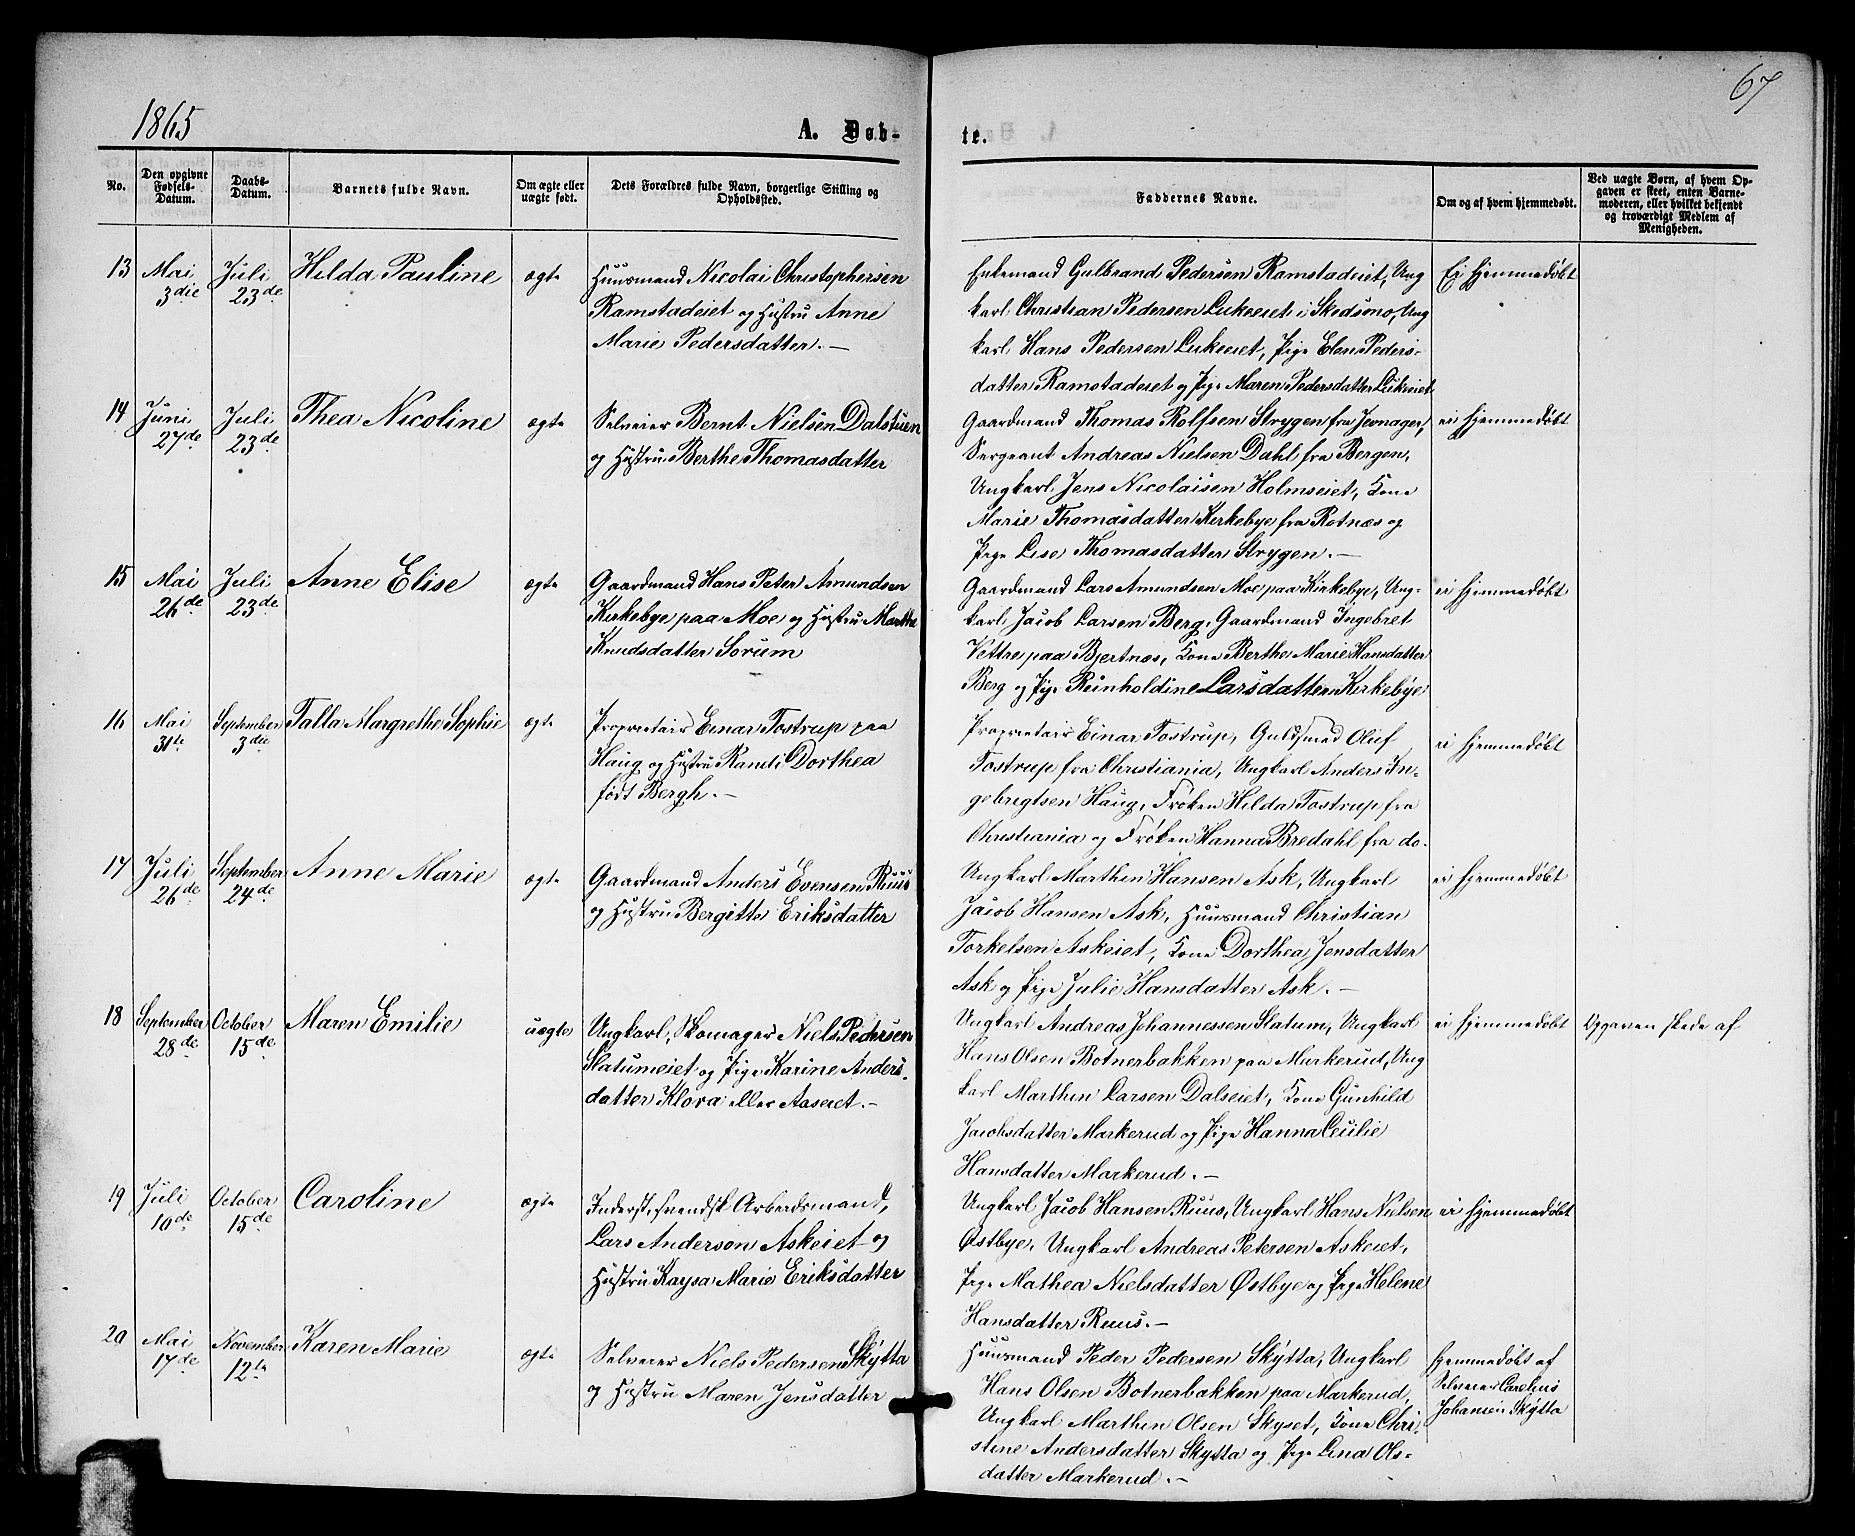 1865
67
A. Døb-
te.
No.
Den opgivne Fødsels-Datum.
Daabs-Datum.
Barnets fulde Navn.
Om ægte eller uægte født.
Dets Forældres fulde Navn, borgerlige Stilling og Opholdssted.
Faddernes Navne.
Om og af hvem hjemmedøbt.
Ved uægte Børn, af hvem Opgaven er skeet, enten Barnemoderen, eller hvilket bekjendt og troværdigt Medlem af Menigheden.
13 Mai 3die Juli 23de Hilda Pauline ægte
Huusmand Nicolai Christophersen
Ramstadeiet og Hustru Anne
Marie Pedersdatter.—
Enkemand Gulbrand Pedersen Ramstadeiet, Ung
karl Christian Pedersen Lukeeiet i Skedsmo, Ung
karl Hans Pedersen Lukeeiet, Pige Elen Peders-
datter Ramstadeiet og Pige Maren Pedersdatter Lukeeiet
Ei hjemmedøbt
14 Juni 27de Juli 23de Thea Nicoline ægte
Selveier Bernt Nielsen Dalstuen
og Hustru Berthe Thomasdatter
Gaardmand Thomas Rolfsen Strygen fra Jevnager,
Sergeant Andreas Nielsen Dahl fra Bergen,
Ungkarl Jens Nicolaisen Holmseiet, Kone
Marie Thomasdatter Kirkebye fra Rotnæs og
Pige Lise Thomasdatter Strygen.—
ei hjemmedøbt
15 Mai 26de Juli 23de Anne Elise ægte
Gaardmand Hans Peter Amundsen
Kirkebye paa Moe og Hustru Marthe
Knudsdatter Sørum
Gaardmand Lars Amundsen Moe paa Kirkebye, Ung-
karl Jacob Larsen Berg, Gaardmand Ingebret
Vettre paa Bjertnæs, Kone Berthe Marie Hansdatter
Berg og Pige Reinholdine Larsdatter Kirkebye
ei hjemmedøbt
16 Mai 31te September 3die Talla Margrethe Sophie ægte
Proprietair Einar Tostrup paa
Haug og Hustru Randi Dorthea
født Bergh.—
Proprietair Einar Tostrup, Guldsmed Oluf
Tostrup fra Christiania, Ungkarl Anders In-
gebrigtsen Haug, Frøken Hilda Tostrup fra
Christiania og Frøken Hanna Bredahl fra do.
ei hjemmedøbt
17 Juli 26de September 24de Anne Marie ægte
Gaardmand Anders Evensen Ruus
og Hustru Bergitte Eriksdatter
Ungkarl Marthin Hansen Ask, Ungkarl
Jacob Hansen Ask, Huusmand Christian
Torkelsen Askeiet, Kone Dorthea Jensdatter
Ask og Pige Julie Hansdatter Ask.—
ei hjemmedøbt
18 September 28de October 15de Maren Emilie uægte
Ungkarl, Skomager Niels Pedersen
Slatumeiet og Pige Karine Anders-
datter Klova eller Aaseiet.—
Ungkarl Andreas Johannessen Slatum, Ungkarl
Hans Olsen Botnerbakken paa Markerud, Ung
karl Marthin Larsen Dalseiet, Kone Gunhild
Jacobsdatter Markerud og Pige Hanna Cecilie
Hansdatter Markerud.—
ei hjemmedøbt
Opgaven skede af
19 Juli 10de October 15de Caroline ægte
Inderst, svendsk Arbeidsmand,
Lars Anderson Askeiet og
Hustru Kaysa Marie Eriksdatter
Ungkarl Jacob Hansen Ruus, Ungkarl Hans Nielsen
Østbye, Ungkarl Andreas Petersen Askeiet,
Pige Mathea Nielsdatter Østbye og Pige Helene
Hansdatter Ruus.—
ei hjemmedøbt
20 Mai 17de November 12te Karen Marie ægte
Selveier Niels Pedersen Skytta
og Hustru Maren Jensdatter
Huusmand Peder Pedersen Skytta, Ungkarl
Hans Olsen Botnerbakken paa Markerud,
Ungkarl Marthin Olsen Skyset, Kone Chri-
stine Andersdatter Skytta og Pige Lina Ols-
datter Markerud.—
hjemmedøbt af
Selveier Carelius
Johansen Skytta